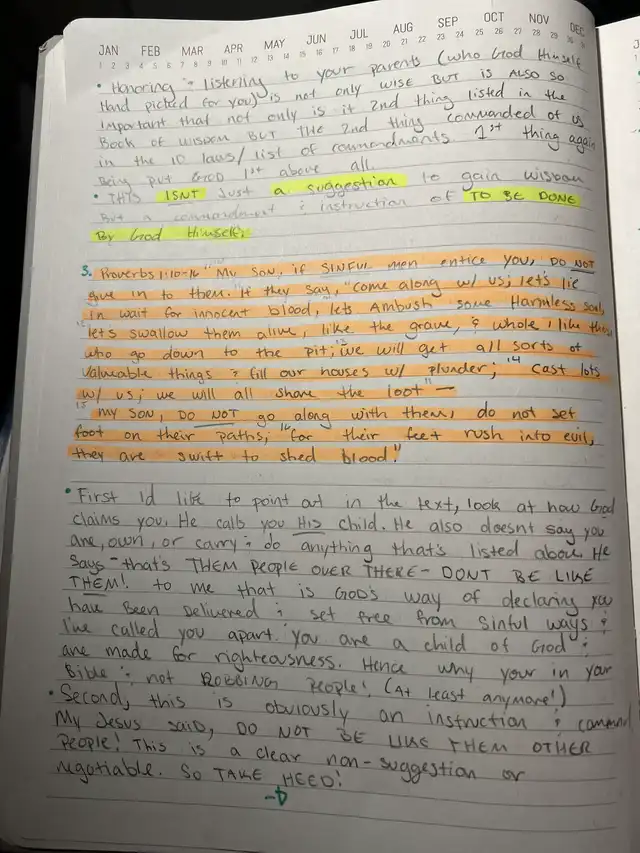 JAN FEB MAR APR MAY JUN JUL AUG SEP OCT NOV DEC
1 2 3 4 5 6 7 8 9 10 11 12 13 14 15 16 17 18 19 20 21 22 23 24 25 26 27 28 29 30 31
• Honoring & listening to your parents (who God Himself
Hand picked for you) is not only WISE BUT is ALSO SO
Important that not only is it 2nd thing listed in the
Book of WISDOM BUT THE 2nd thing commanded of us
in the 10 laws/list of commandments. 1st thing again
Being put GOD 1st above all.
• THIS ISNT Just a suggestion to gain wisdom
But a commandment & instruction of TO BE DONE
By God Himself.
3. Proverbs 1:10-16 "My Son, if SINFUL men entice you, DO NOT
give in to them. "If they say, "come along w/ us; let's lie
in wait for innocent blood, lets Ambush some Harmless soul,
lets swallow them alive, like the grave, & whole, like those
who go down to the pit; 13 we will get all sorts of
valueable things & fill our houses w/ plunder; 14 cast lots
w/ us; we will all share the loot" —
15 my SON, DO NOT go along with them, do not set
foot on their paths; 16 for their feet rush into evil,
they are swift to shed blood."
• First Id like to point out in the text, look at how God
claims you. He calls you HIS child. He also doesnt say you
are, own, or carry & do anything that's listed above He
says - that's THEM PEOPLE OVER THERE - DONT BE LIKE
THEM! to me that is GOD'S way of declaring you
have Been Delivered & set free from sinful ways &
I've called you apart. You are a child of God &
are made for righteousness. Hence why your in your
Bible & not ROBBING PEOPLE! (At least anymore!)
• Second, this is obviously an instruction & command
My Jesus said, DO NOT BE LIKE THEM OTHER
PEOPLE! This is a clear non-suggestion or
negotiable. SO TAKE HEED!